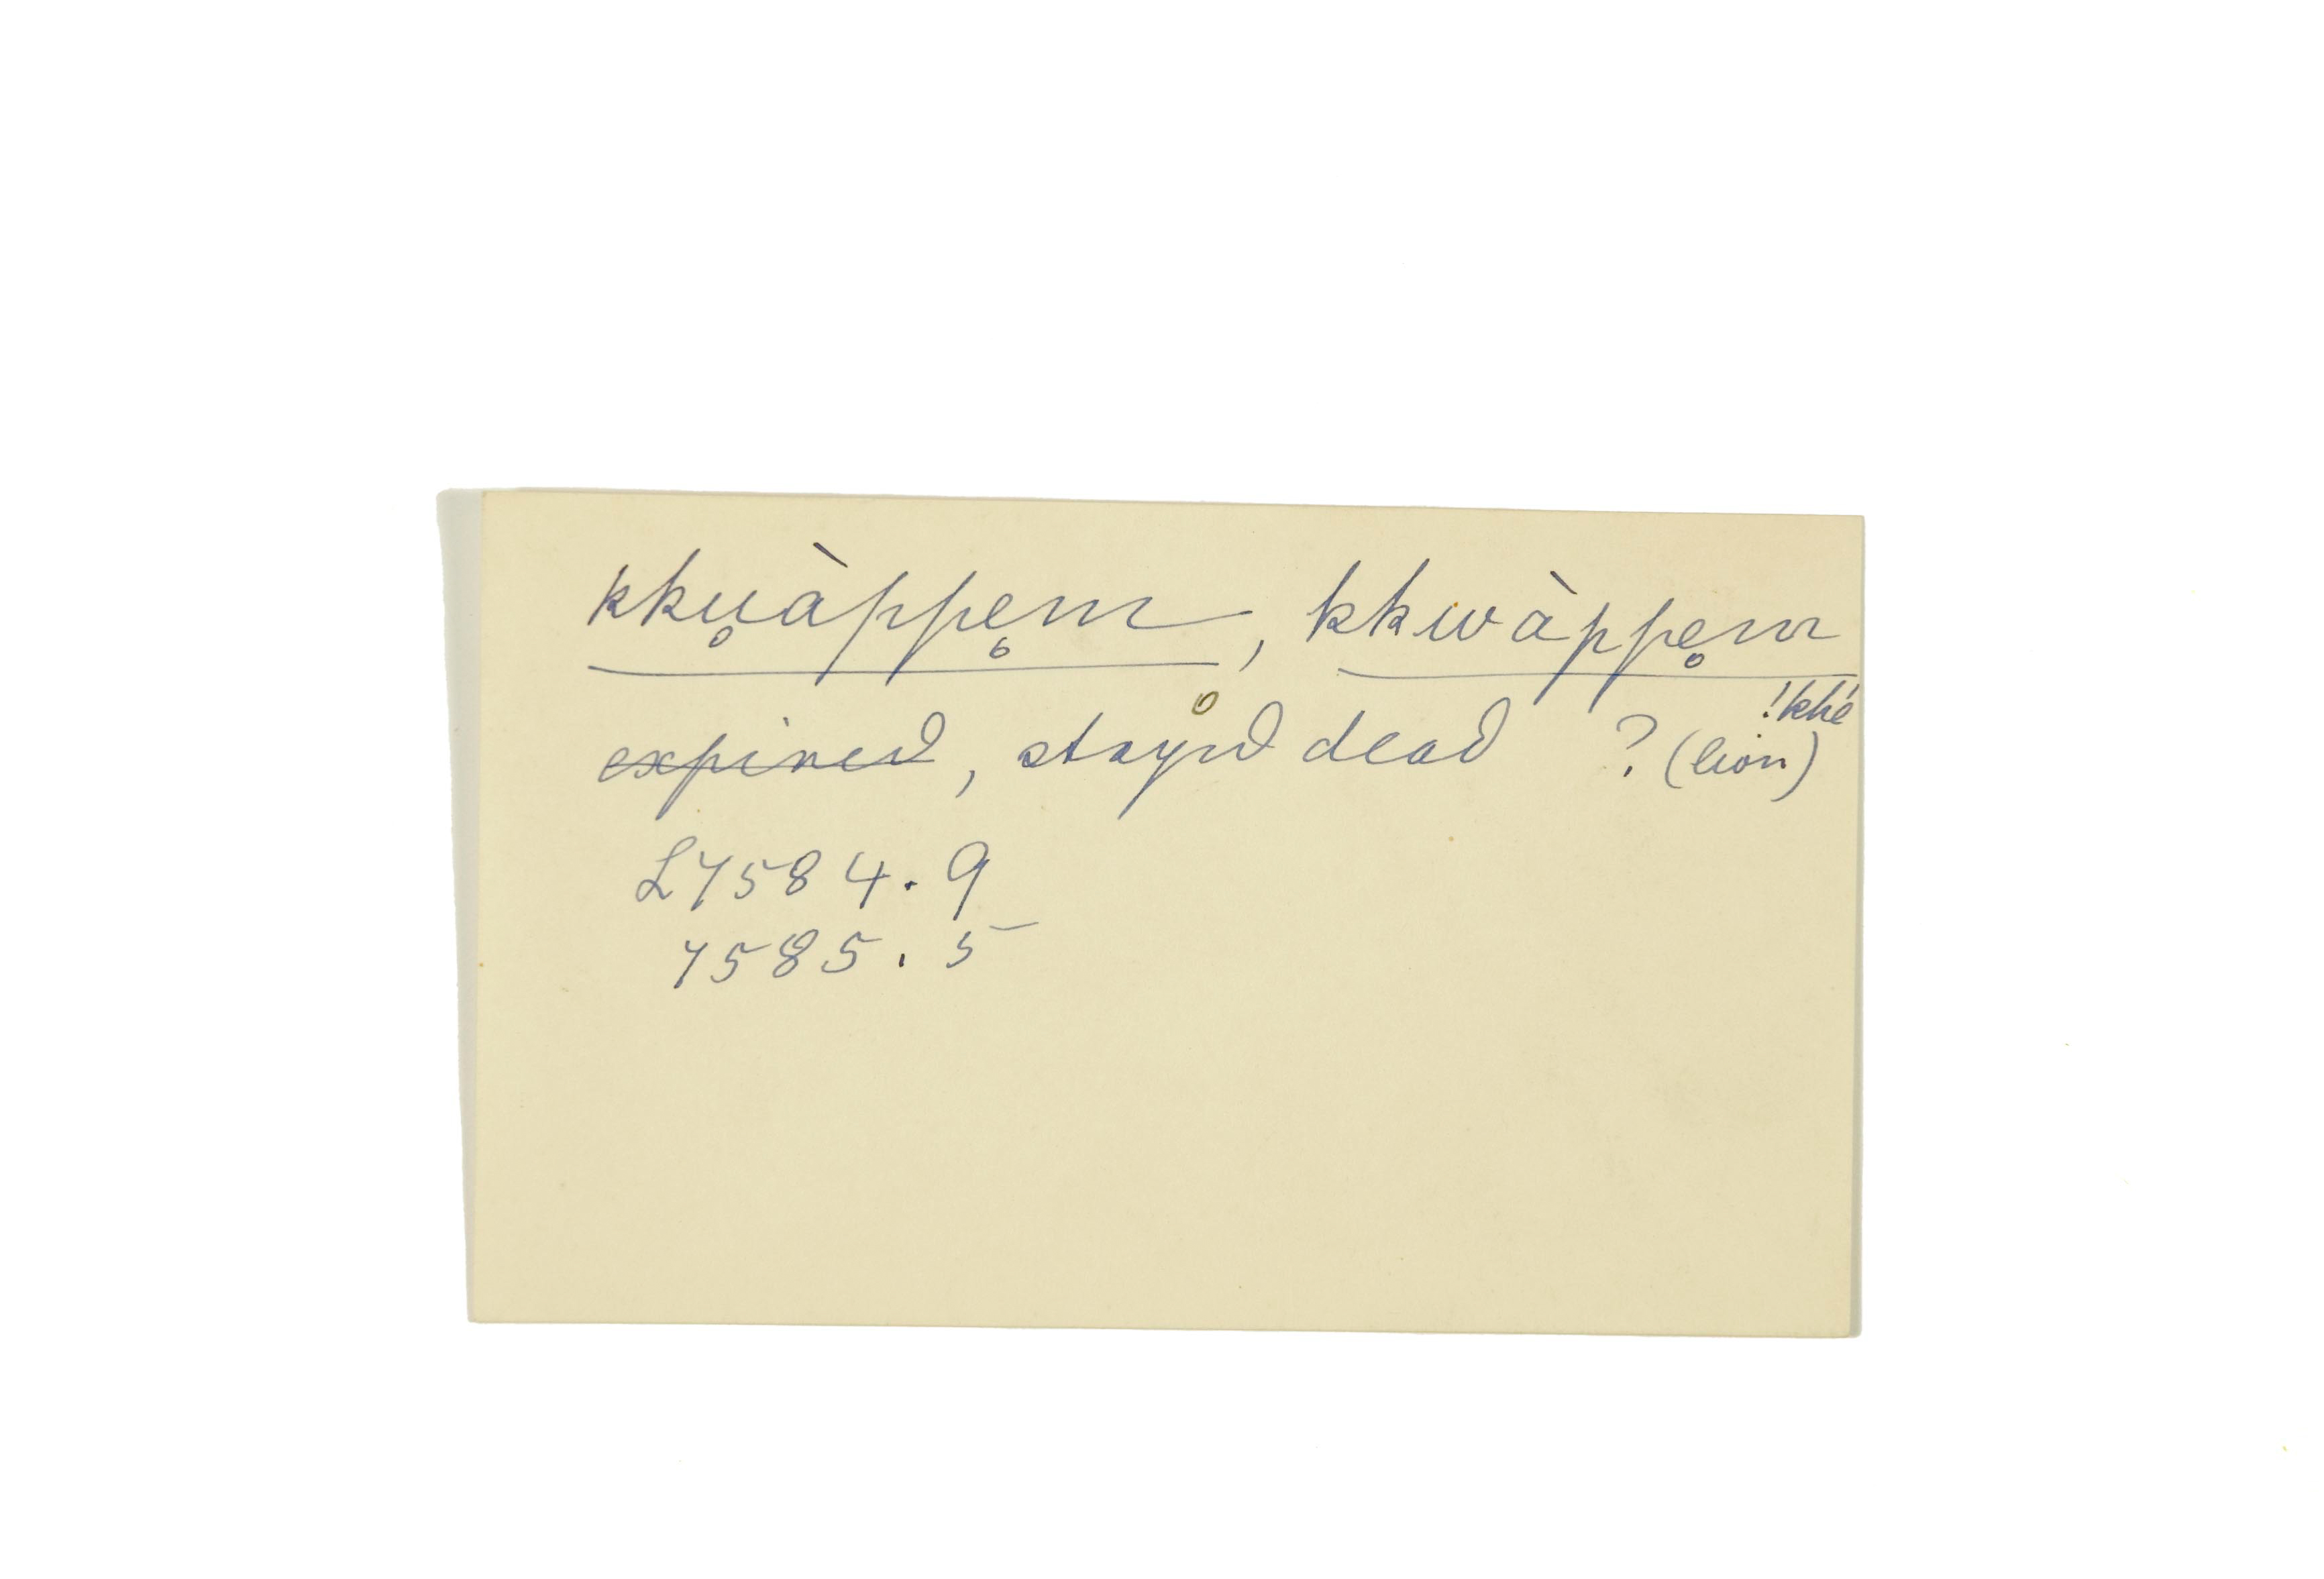 kku̥àppe̥m, kkwàppe̥m
!khé
expired, stayed dead ? (lion)
L7584.9
7585.5